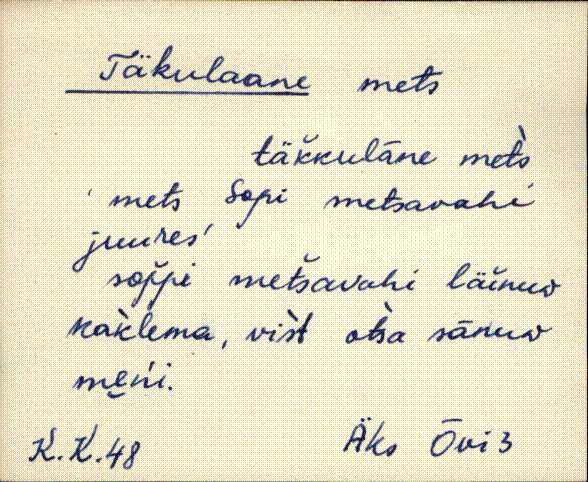 Täkulaane mets
täkkulāne mets̀
'mets Sopi metsavahi
juures'
soppi metšavahi läinuᴅ
kàklema, vìst òtsa sānuᴅ
mẹni.
K.K.48 Äks Õvi 3